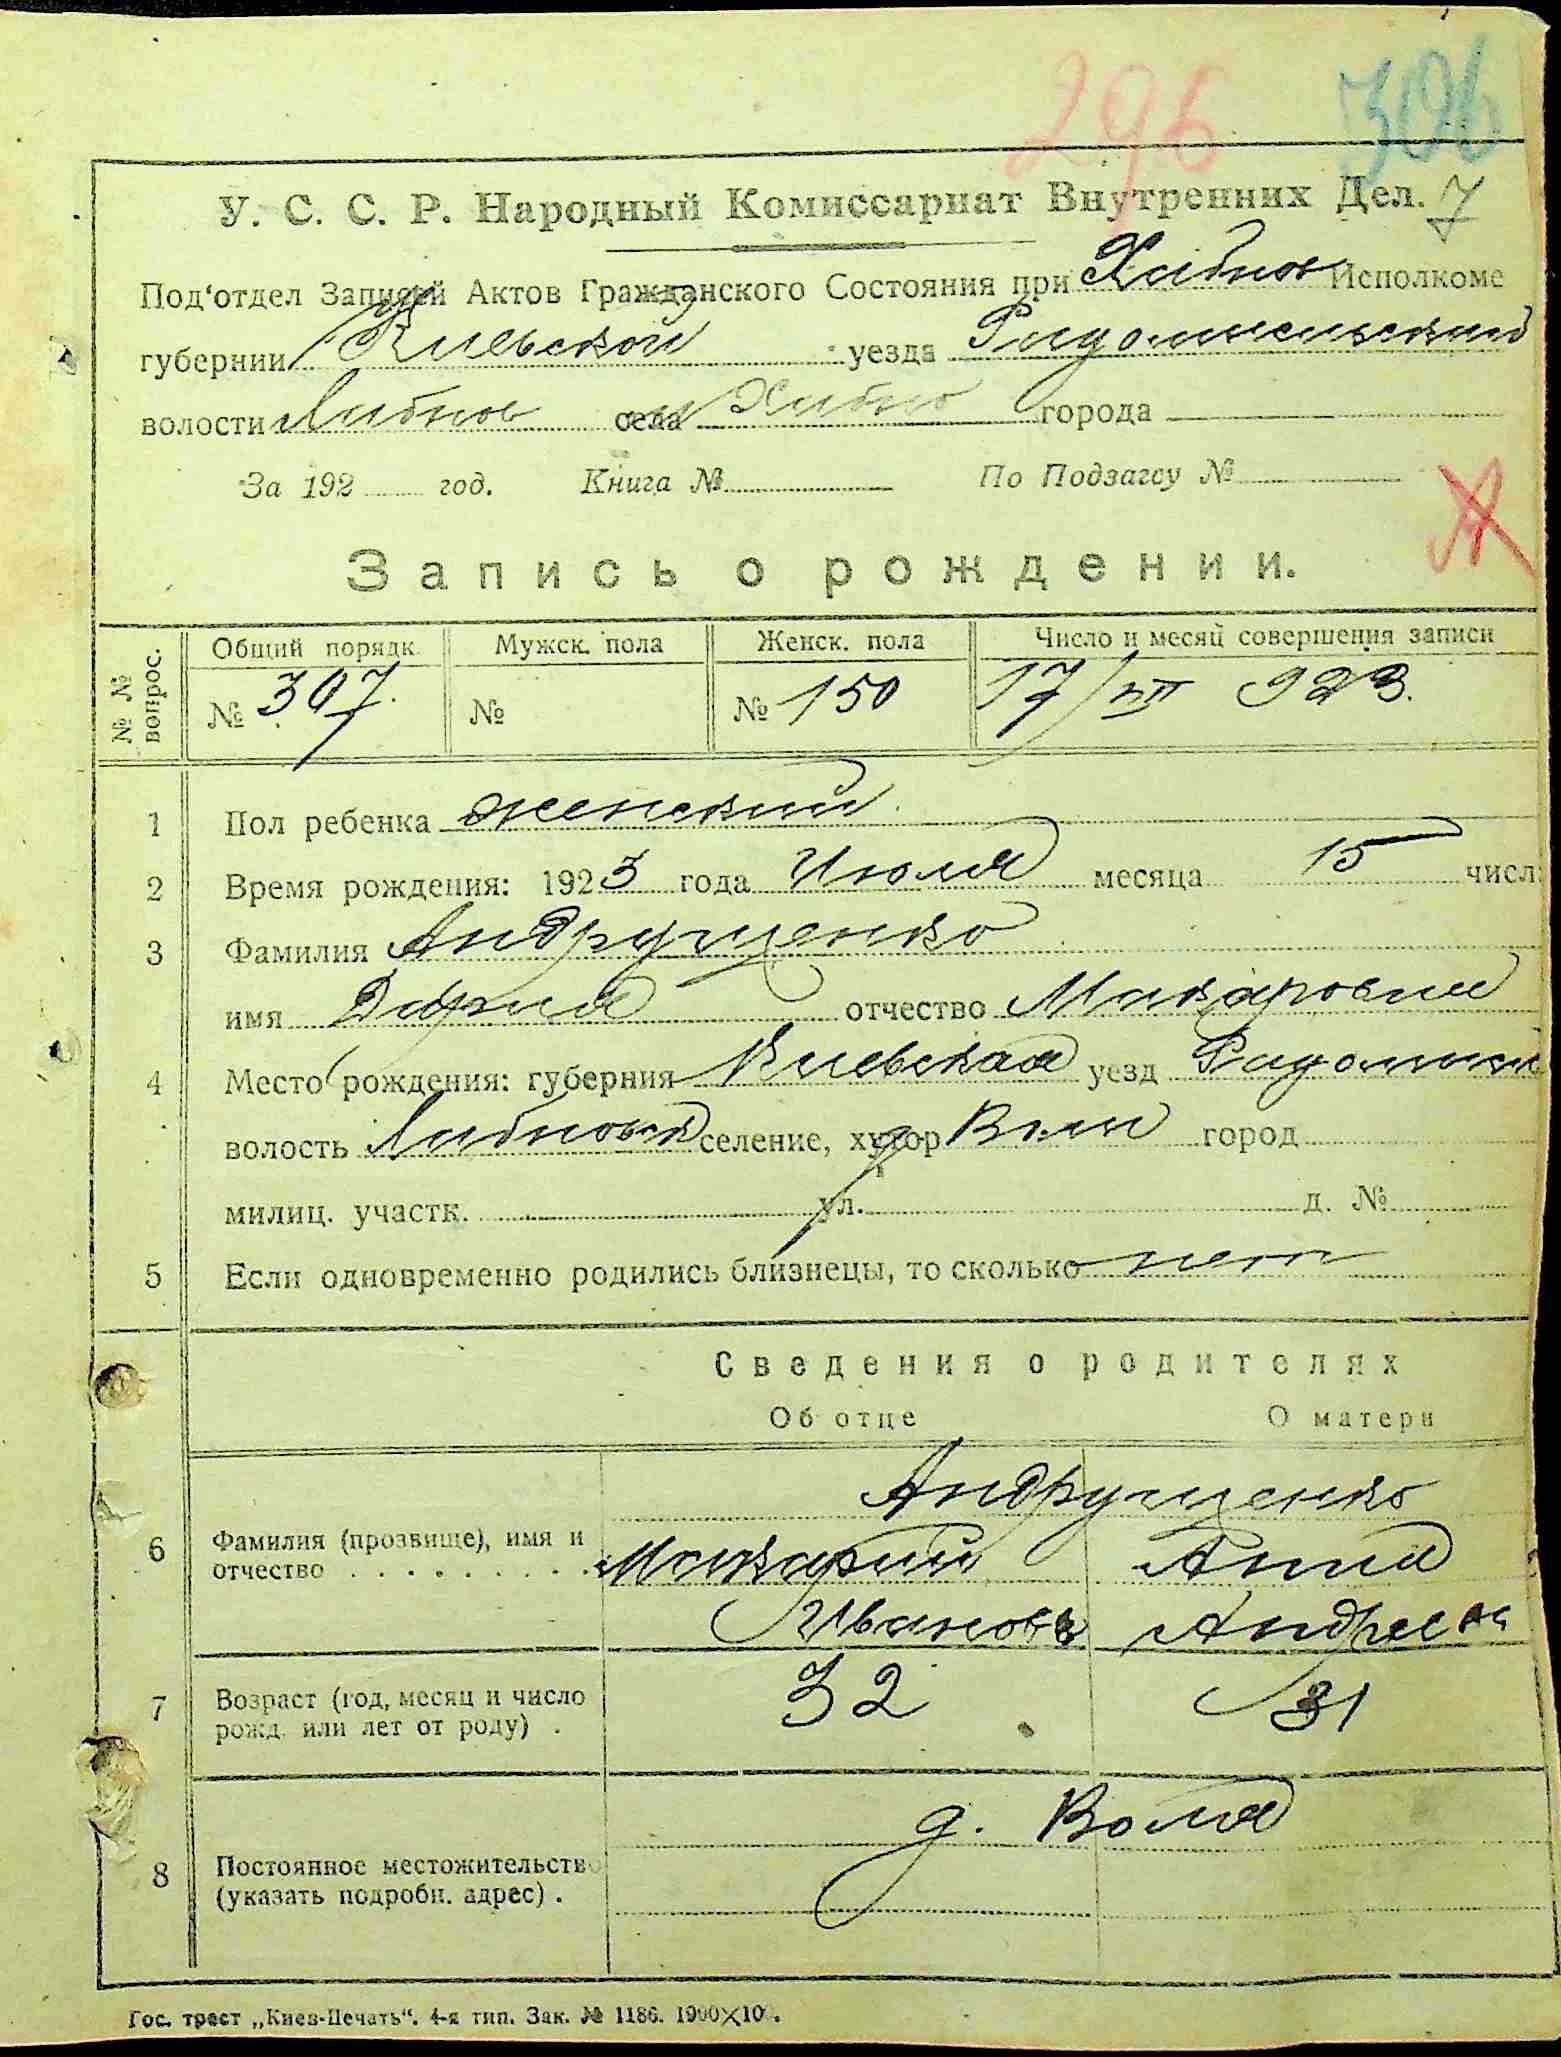 296 306
У. С. С. Р. Народный Комиссариат Внутренних Дел. 7
Под‘отдел Записей Актов Гражданского Состояния при Хабнов Исполкоме
губернии Киевской уезда
волости Хабнов села Хабно города
За 192 год. Книга № По Подзагсу №
Запись о рождении.
№ № вопрос. Общий порядк. Мужск. пола Женск. пола Число и месяц совершения записи
№ 307. № № 150 17/VII 923.
1 Пол ребенка женский
2 Время рождения: 1923 года Июля месяца 15 числ
3 Фамилия Андрущенко
имя Дария отчество Макаровна
4 Место рождения: губерния Киевская уезд Радомысл
волость селение, хутор город
милиц. участк. ул. д. №
5 Если одновременно родились близнецы, то сколько нет
Сведения о родителях
Об отце О матери
Андрущенко
6 Фамилия (прозвище), имя и Макарий Анна
отчество . . . . . . . . . Иванов Андреевн
7 Возраст (год, месяц и число 32 31
рожд. или лет от роду) .
д. Воля
8 Постоянное местожительство
(указать подробн. адрес) .
Гос. трест „Киев-Печать“. 4-я тип. Зак. № 1186. 1900×100.